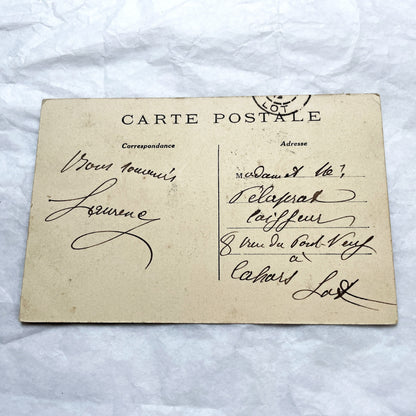 LOT
CARTE POSTALE
Correspondance
Adresse
Bons souvenirs
Laurence
Madame et Mr
Pélaprat
Coiffeur
8 rue du Pont-Neuf
à
Cahors
Lot